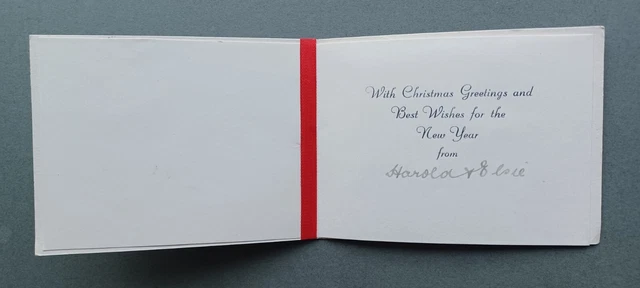 With Christmas Greetings and
Best Wishes for the
New Year
from
Harold & Elsie